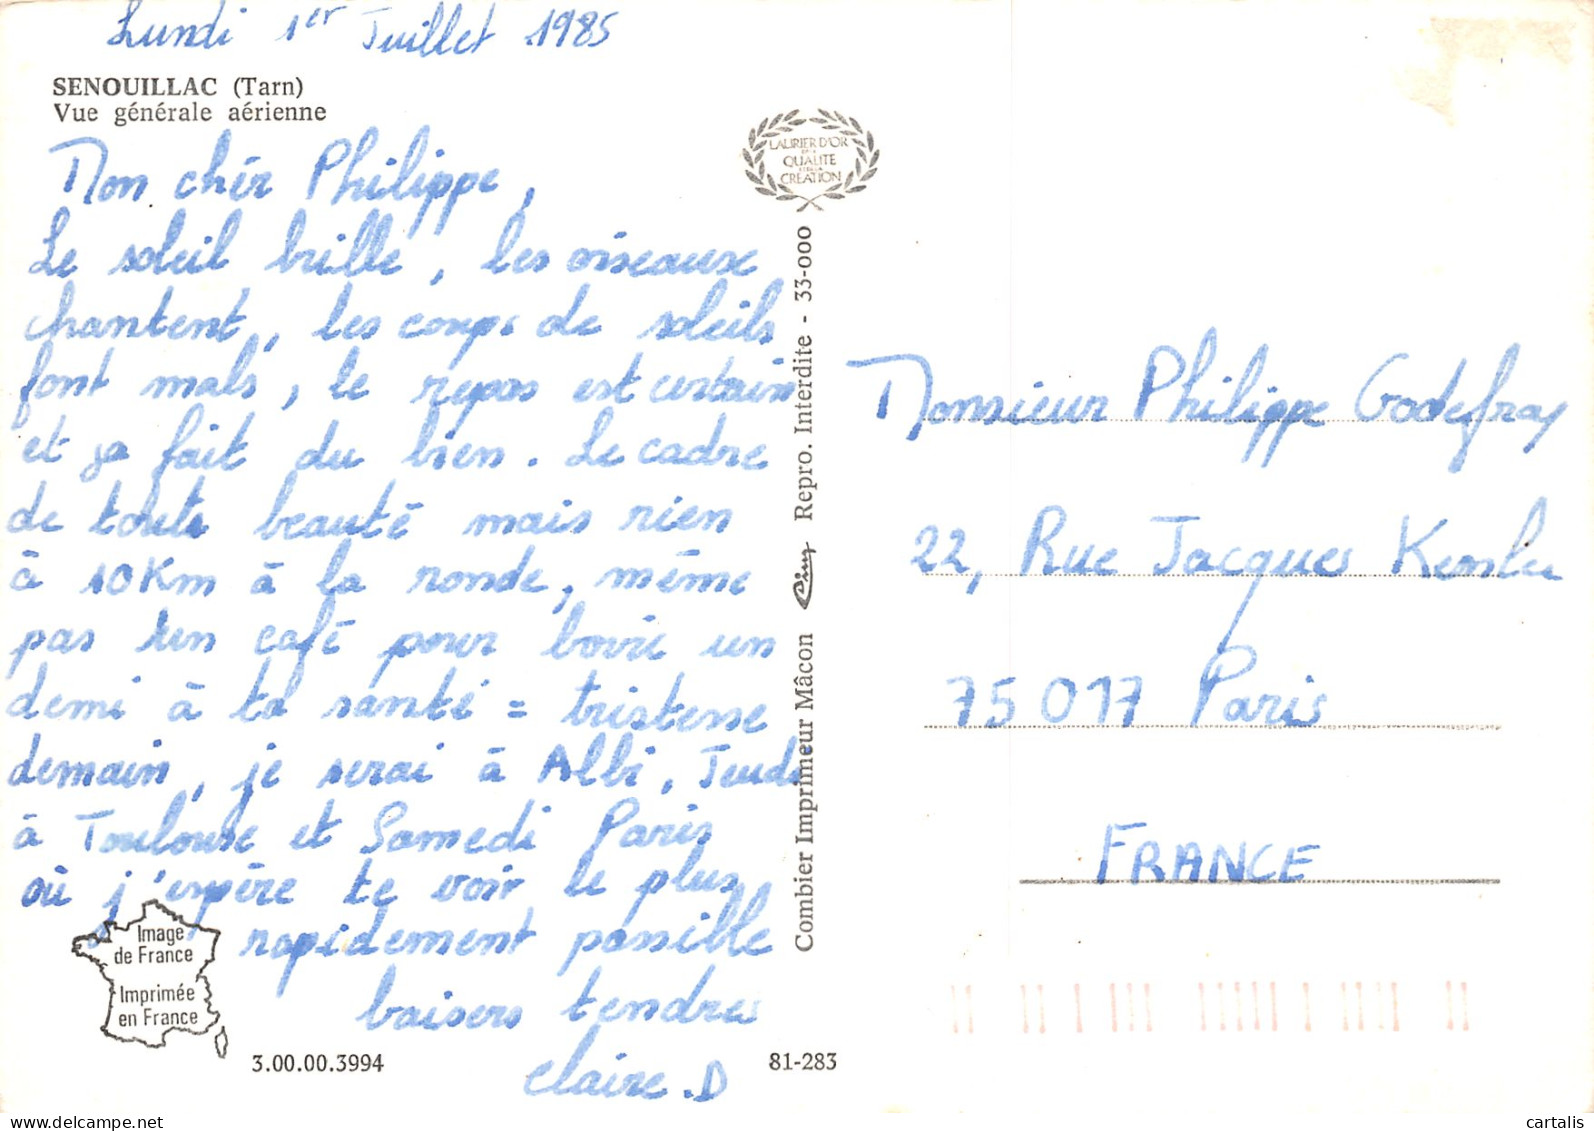 Lundi 1er Juillet 1985
SENOUILLAC (Tarn)
Vue générale aérienne
Mon chér Philippe,
Le soleil brille, les oiseaux
chantent, les coups de soleils
font mals, le repos est certain
et ça fait du bien. Le cadre
de toute beauté mais rien
à 10 Km à la ronde, même
pas un café pour boire un
demi à ta santé = tristesse
demain, je serai à Albi, Jeudi
à Toulouse et Samedi Paris
où j'espère te voir le plus
rapidement possible
baisers tendres
Claire.D
Image
de France
Imprimée
en France
3.00.00.3994
81-283
LAURIER D'OR
DE LA
QUALITE
ET DE LA
CREATION
Combier Imprimeur Mâcon Cim Repro. Interdite - 33-000
Monsieur Philippe Godefroy
22, Rue Jacques
75017 Paris
FRANCE
cartalis.com